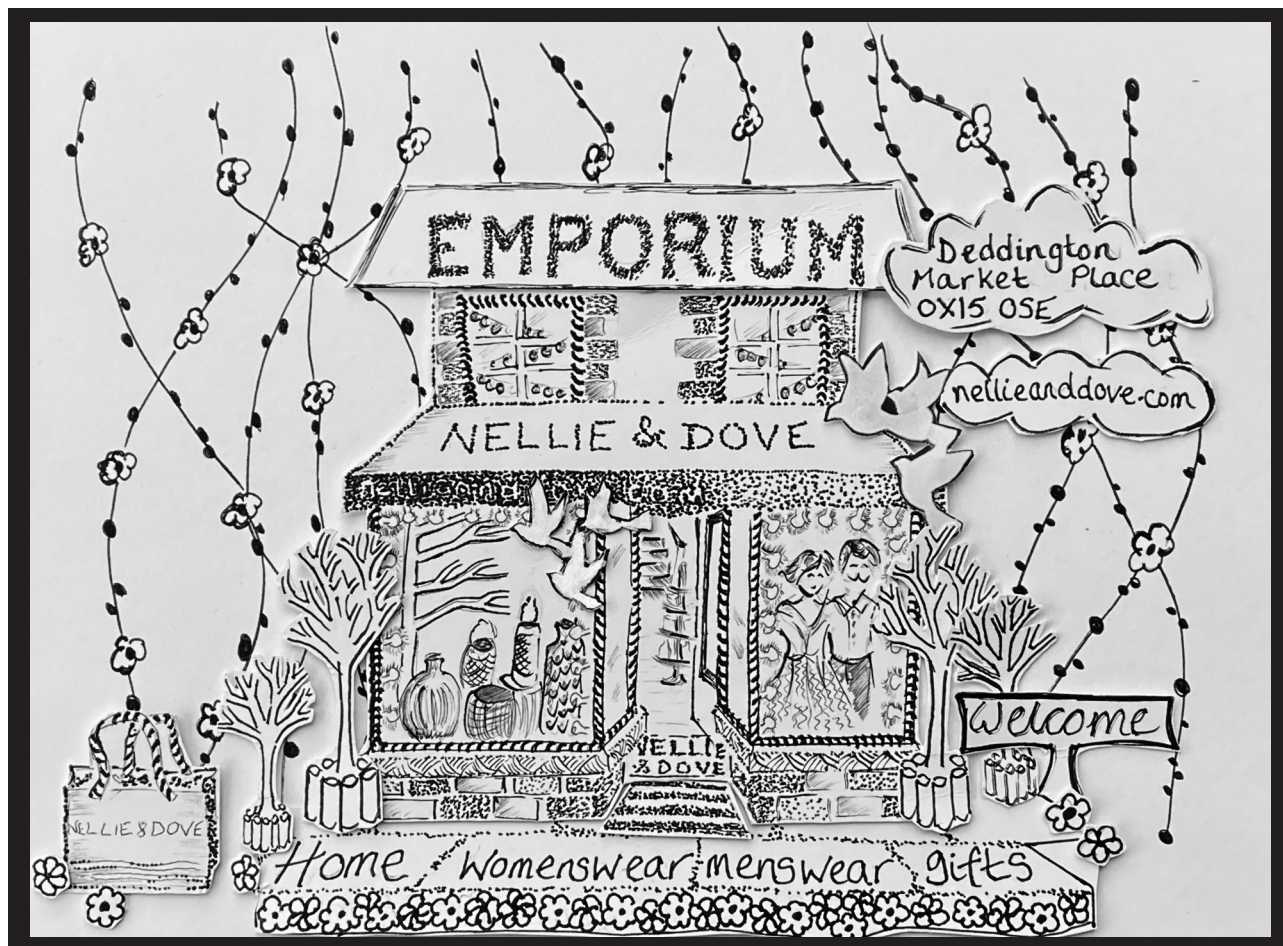 EMPORIUM
Deddington
Market Place
OX15 OSE
nellieanddove.com
NELLIE & DOVE
Welcome
NELLIE
& DOVE
NELLIE & DOVE
Home womenswear menswear gifts